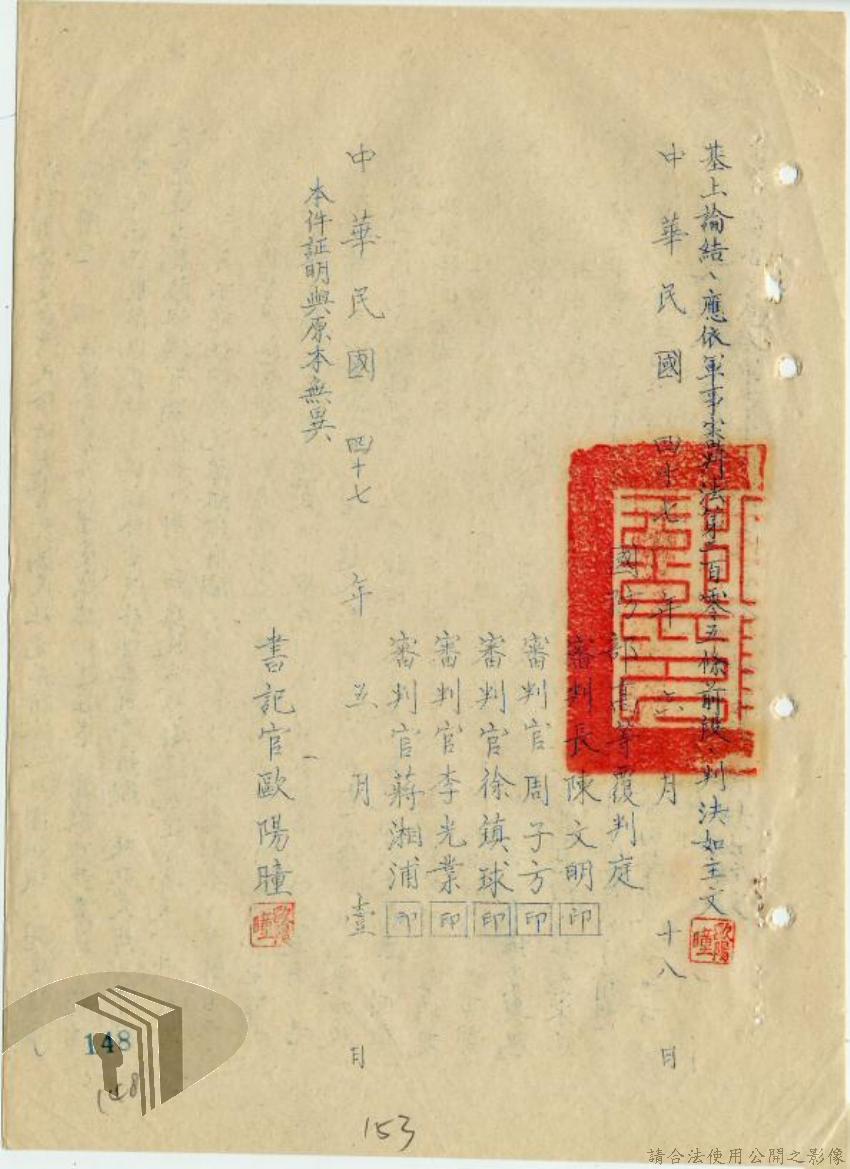 基上論結、應依軍事審判法第二百零五條前段、判決如主文
歐陽瞳
中華民國四十七年六月十八日
國防部高等覆判庭
審判長陳文明印
審判官周子方印
審判官徐鎮球印
審判官李光業印
審判官蔣湘浦印
中華民國四十七年五月壹日
本件証明與原本無異
書記官歐陽瞳
歐陽瞳
148
148
153
請合法使用公開之影像